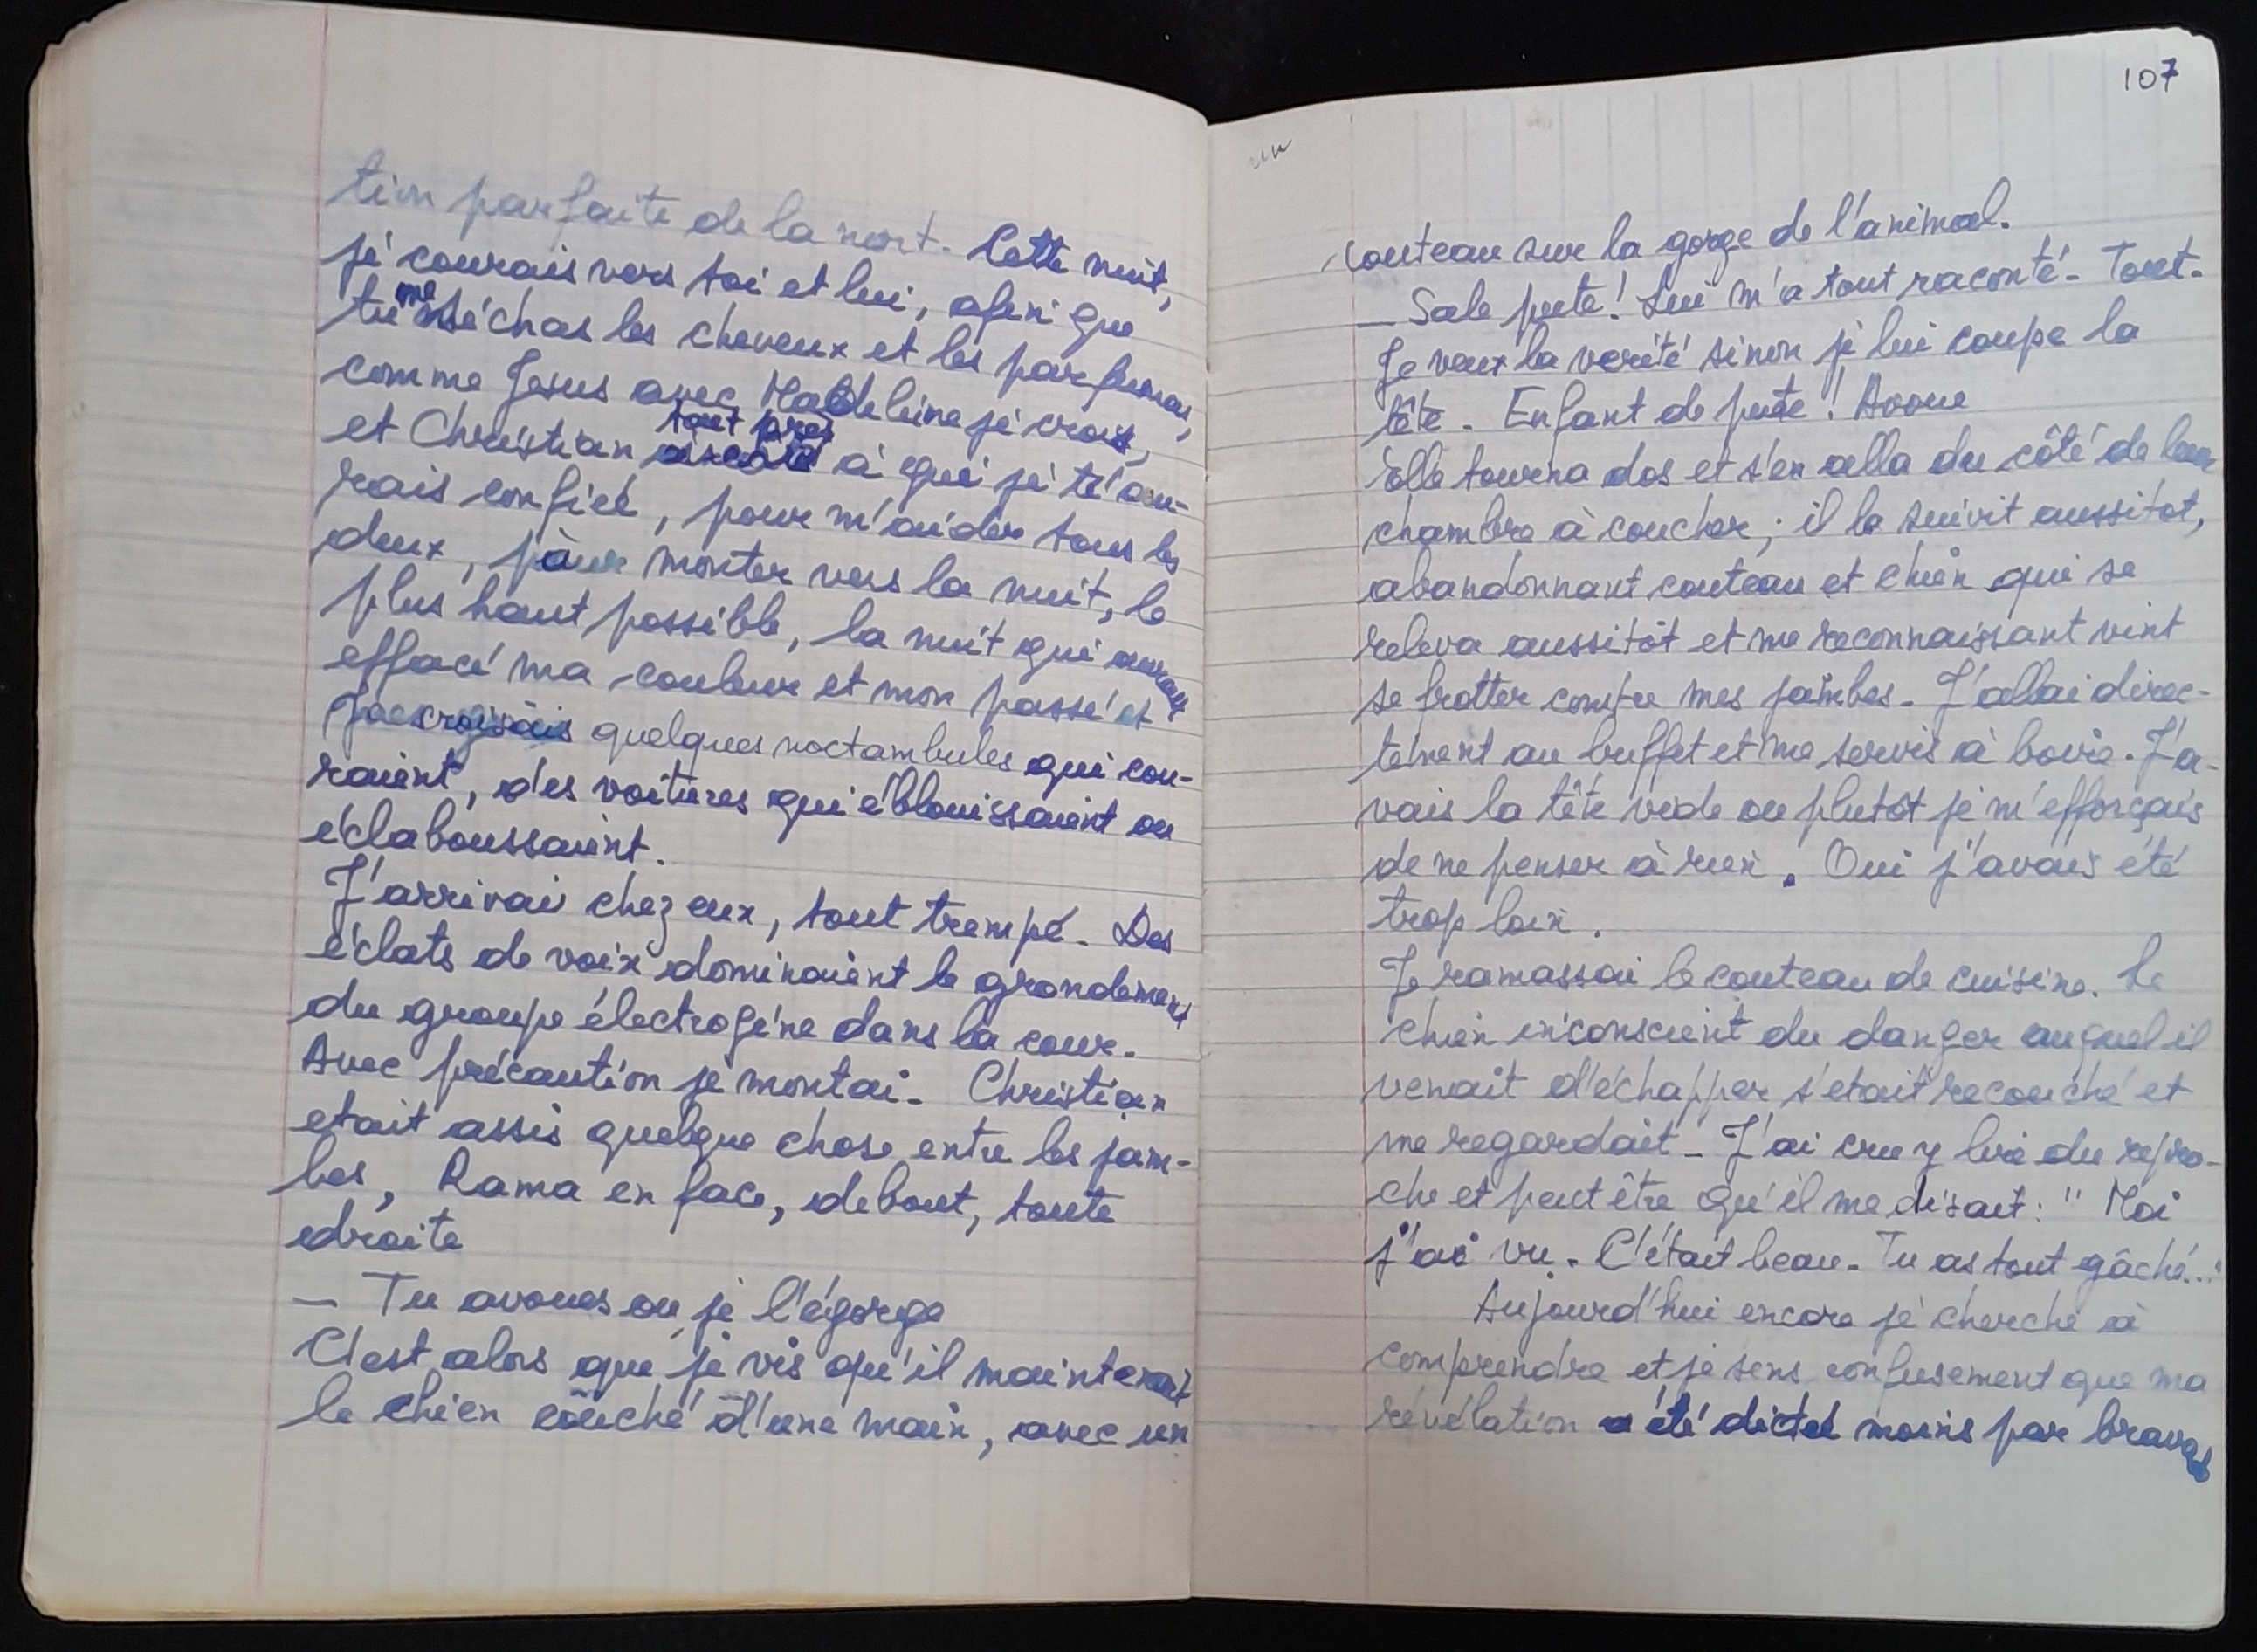 tion parfaite de la mort. Cette nuit,
je courais vers toi et lui, afin que
tu me séchas les cheveux et les parfumas,
comme Jesus avec Madeleine je crois,
et Christian tout près à qui je t'au-
rais confiée, pour m'aider tous les
deux, pour monter vers la nuit, le
plus haut possible, la nuit qui aurait
effacé ma couleur et mon passé et
Je croisais quelques noctambules qui cou-
raient, des voitures qui éblouissaient ou
éclaboussaient.
J'arrivai chez eux, tout trempé. Des
éclats de voix dominaient le grondement
du groupe électrogène dans la cour.
Avec précaution je montai. Christian
etait assis quelque chose entre les jam-
bes, Rama en face, debout, toute
droite
— Tu avoues ou je l'égorge
C'est alors que je vis qu'il maintenait
le chien couché d'une main, avec un
107
un
couteau sur la gorge de l'animal.
— Sale pute! Lui m'a tout raconté. Tout.
Je veux la verité sinon je lui coupe la
tête. Enfant de pute! Avoue
Elle tourna dos et s'en alla du côté de leur
chambre à coucher; il la suivit aussitot,
abandonnant couteau et chien qui se
releva aussitôt et me reconnaissant vint
se frotter contre mes jambes. J'allai direc-
tement au buffet et me servis à boire. J'a-
vais la tête vide ou plutôt je m'efforçais
de ne penser à rien. Oui j'avais été
trop loin.
Je ramassai le couteau de cuisine. Le
chien inconscient du danger auquel il
venait d'échapper s'etait recouché et
me regardait. J'ai cru y lire du repro-
che et peut être qu'il me disait: "Moi
j'ai vu. C'était beau. Tu as tout gâché..."
Aujourd'hui encore je cherche à
comprendre et je sens confusement que ma
révélation a été dictée moins par bravade